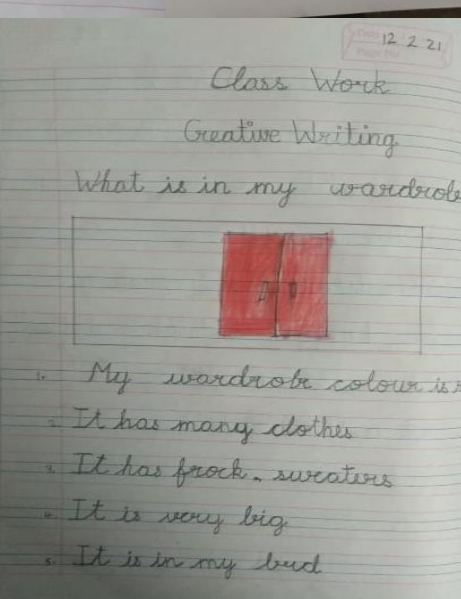 12 2 21
Class Work
Creative Writing
What is in my wardrob
1. My wardrobe colour is
2. It has many clothes
3. It has frock, sweaters
4. It is very big
5. It is in my bed